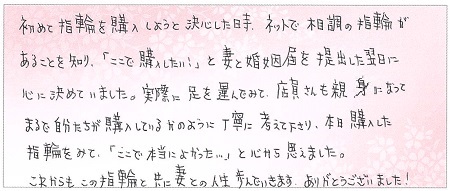 初めて指輪を購入しようと決心した日時、ネットで杢調の指輪が
あることを知り、「ここで購入したい!」と妻と婚姻届を提出した翌日に
心に決めていました。実際に足を運んでみて、店員さんも親身になって
まるで自分たちが購入しているかのように丁寧に考えて下さり、本日購入した
指輪をみて、「ここで本当によかった…」と心から思えました。
これからもこの指輪と共に妻との人生歩んでいきます。ありがとうございました!